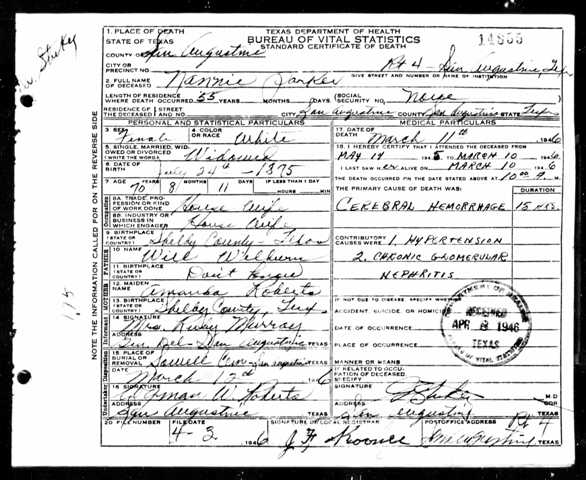 TEXAS DEPARTMENT OF HEALTH
BUREAU OF VITAL STATISTICS
STANDARD CERTIFICATE OF DEATH
1. PLACE OF DEATH
STATE OF TEXAS
COUNTY OF San Augustine
CITY OR PRECINCT NO.
Rt 4 - San Augustine, Tex
GIVE STREET AND NUMBER OR NAME OF INSTITUTION
2. FULL NAME OF DECEASED Nannie Parker
LENGTH OF RESIDENCE WHERE DEATH OCCURRED 55 YEARS MONTHS DAYS SOCIAL SECURITY NO. None
RESIDENCE OF THE DECEASED STREET CITY San Augustine COUNTY San Augustine STATE Tex
PERSONAL AND STATISTICAL PARTICULARS
MEDICAL PARTICULARS
3. SEX Female 4. COLOR OR RACE White
17. DATE OF DEATH March 11th 1946
5. SINGLE, MARRIED, WIDOWED OR DIVORCED (WRITE THE WORD) Widowed
18. I HEREBY CERTIFY THAT I ATTENDED THE DECEASED FROM
MAY 14 1945 MARCH 10 1946
6. DATE OF BIRTH July 24th - 1875
I LAST SAW ALIVE ON MARCH 10 1946
THE DEATH OCCURRED ON THE DATE STATED ABOVE AT 10:00
7. AGE 70 YEARS 8 MONTHS 11 DAYS IF LESS THAN 1 DAY HOURS MIN.
THE PRIMARY CAUSE OF DEATH WAS: DURATION
8A. TRADE, PROFESSION OR KIND OF WORK DONE House Wife
CEREBRAL HEMORRHAGE 15 HRS.
8B. INDUSTRY OR BUSINESS IN WHICH ENGAGED House Wife
9. BIRTHPLACE (STATE OR COUNTRY) Shelby County - Texas
CONTRIBUTORY CAUSES WERE 1. HYPERTENSION
10. NAME Will Wilburn
2. CHRONIC GLOMERULAR
NEPHRITIS
11. BIRTHPLACE (STATE OR COUNTRY) Don't Know
12. MAIDEN NAME Amanda Roberts
13. BIRTHPLACE (STATE OR COUNTRY) Shelby County, Tex.
IF NOT DUE TO DISEASE, SPECIFY WHETHER
ACCIDENT, SUICIDE OR HOMICIDE
14. SIGNATURE Mrs. Murray
DATE OF OCCURRENCE
ADDRESS San Augustine
PLACE OF OCCURRENCE
15. PLACE OF BURIAL OR REMOVAL San Augustine TEXAS
MANNER OR MEANS
DATE March 12th 1946
IF RELATED TO OCCUPATION OF DECEASED SPECIFY
16. SIGNATURE W. Roberts
SIGNATURE M.D.
ADDRESS San Augustine TEXAS
ADDRESS San Augustine TEXAS
20. FILE NUMBER FILE DATE 4-3 1946
SIGNATURE OF LOCAL REGISTRAR
POSTOFFICE ADDRESS Rt 4
San Augustine TEXAS
FATHER
MOTHER
Occupation
Informant
Undertaker
NOTE THE INFORMATION CALLED FOR ON THE REVERSE SIDE
115
DEPARTMENT OF HEALTH
RECEIVED
APR 8 1946
TEXAS
BUREAU OF VITAL STATISTICS